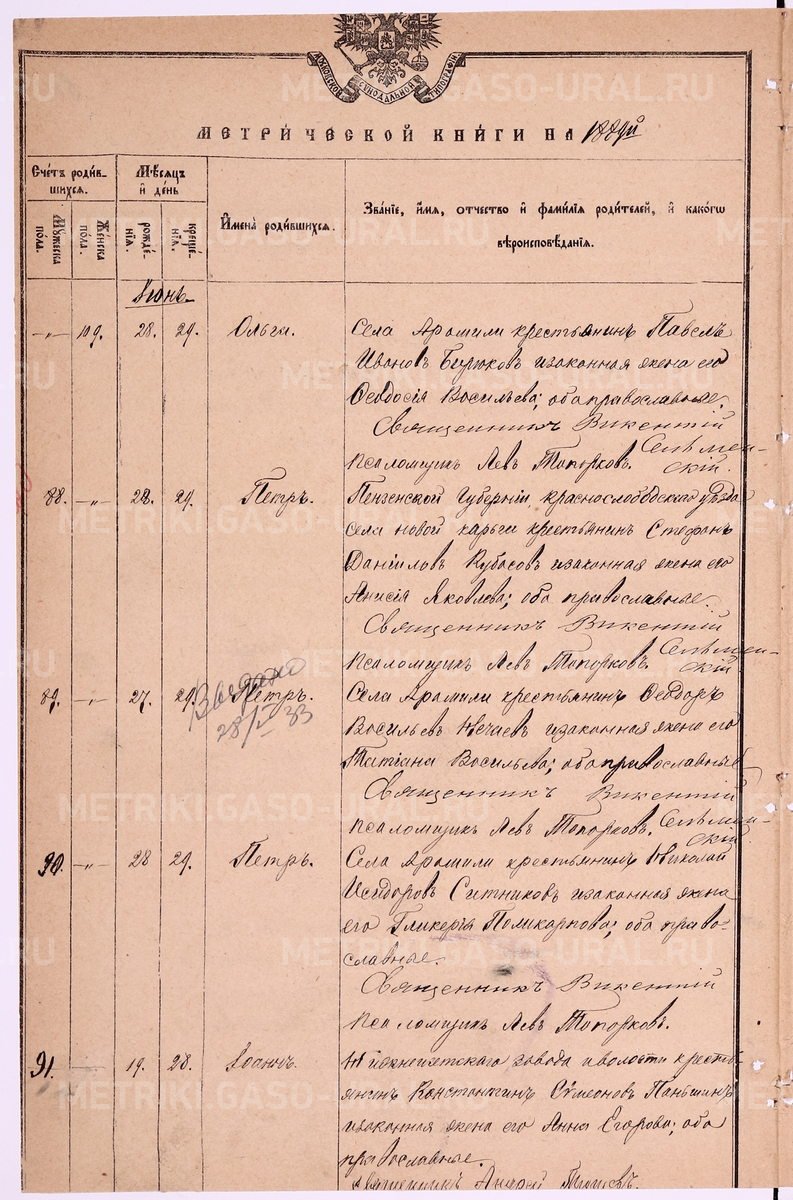 МОСКОВСКОЙ СѴНОДАЛЬНОЙ ТИПОГРАФІИ
МЕТРИ́ЧЕСКОЙ КНИ́ГИ НА 188
Сче́тъ роди́в-
шихся.
Мѣ́сяцъ
и҆ де́нь
И҆мена̀ роди́вшихся.
Зва́нїе, и҆́мя, ѻ҆тчество и҆ фами́лїя роди́телей, и҆ како́гѡ
вѣроисповѣ́данїя.
Мꙋ́жеска
по́ла.
Же́нска
по́ла.
рожде́-
нїя.
креще́-
нїя.
Іюнь
-"- 109. 28. 29. Ольга. Села Арамили крестьянинъ Павелъ
Ивановъ Бирюковъ и законная жена его
Ѳеодосія Васильева; оба православные.
Священникъ Викентій
Сельмен-
ский.
Псаломщикъ Левъ Топорковъ.
88. -"- 28. 29. Петръ. Пензенской Губерніи, краснослободскаго уѣзда
села новой карьги крестьянинъ Стефанъ
Даніиловъ Кубасовъ и законная жена его
Анисія Яковлева; оба православные.
Священникъ Викентій
Сельмен-
ский
Псаломщикъ Левъ Топорковъ.
89. -"- 27. 29. Петръ. Села Арамили крестьянинъ Ѳеодоръ
Выдано
28/IV 33
Васильевъ Нечаевъ и законная жена его
Татіана Васильева; оба православные
Священникъ Викентій
Псаломщикъ Левъ Топорковъ. Сельмен-
скій.
90. -"- 28 29. Петръ. Села Арамили крестьянинъ Николай
Исидоровъ Ситниковъ и законная жена
его Гликерія Поликарпова; оба право-
славные.
Священникъ Викентій
Псаломщикъ Левъ Топорковъ.
91. 19. 28. Іоаннъ. Нижнеисетскаго завода и волости кресть-
янинъ Константинъ Сѵмеоновъ Паньшинъ
и законная жена его Анна Егорова; оба
православные.
Священникъ Андрей
METRIKI.GASO-URAL.RU